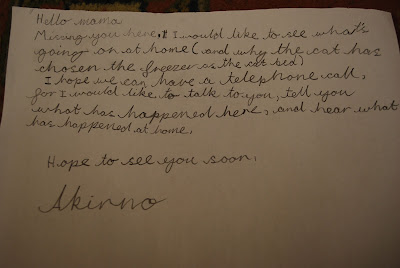 Hello mama
Missing you here, & I would like to see what's
going on at home (and why the cat has
chosen the freezer as the cat bed)
I hope we can have a telephone call,
for I would like to talk to you, tell you
what has happened here, and hear what
has happened at home.
Hope to see you soon,
Akinno